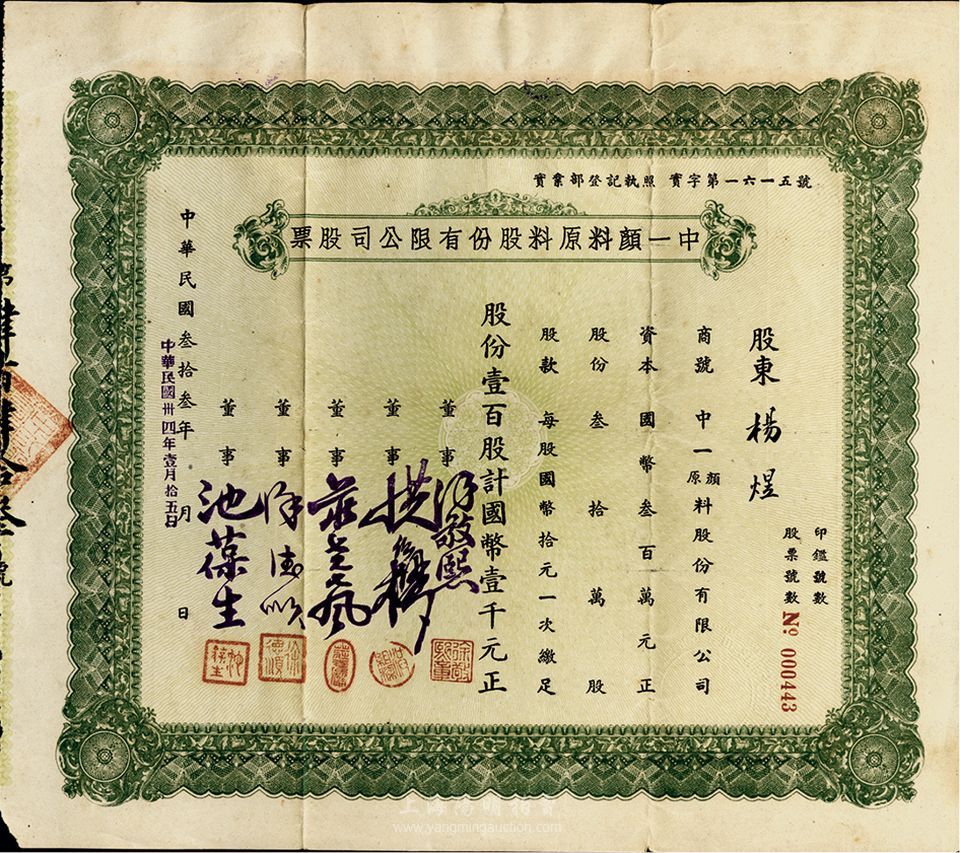 實業部登記執照 實字第一六一五號
中一顏料原料股份有限公司股票
股東 楊煜
印鑑號數
股票號數 No 000443
商號 中一顏料原料股份有限公司
資本 國幣叁百萬元正
股份 叁拾萬股
股款 每股國幣拾元一次繳足
股份壹百股計國幣壹千元正
董事 徐敬熙
董事
董事
董事 徐德順
董事 池葆生
中華民國叁拾叁年 月 日
中華民國卅四年壹月拾五日
上海陽明拍賣
www.yangmingauction.com